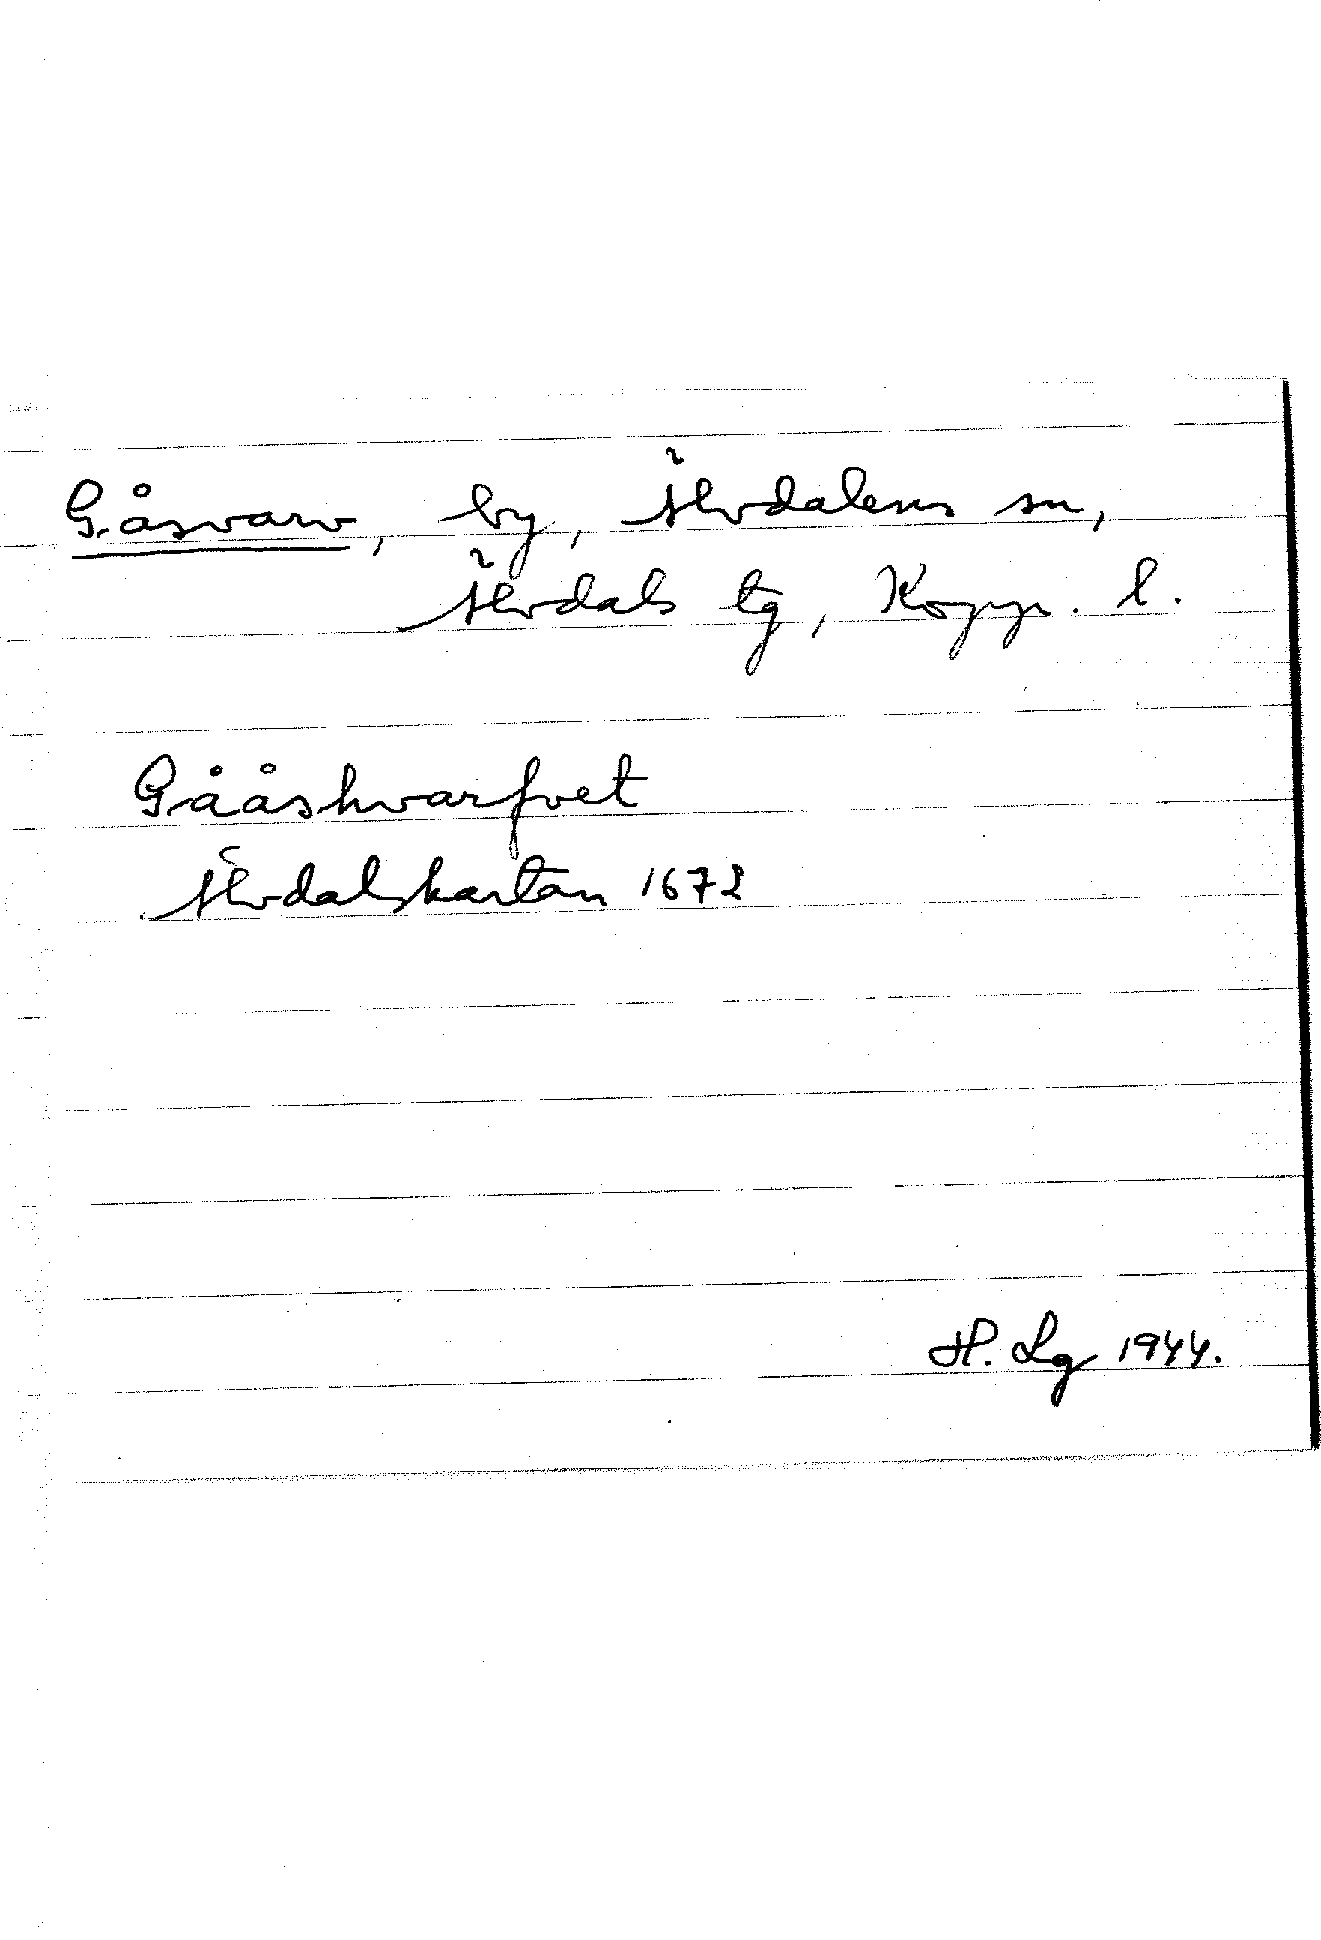 Gåsvarv, by, Älvdalens sn,
Älvdals tg, Kopp. l.
Gååshvarfvet
Älvdalskartan 1672
H. Lg 1944.